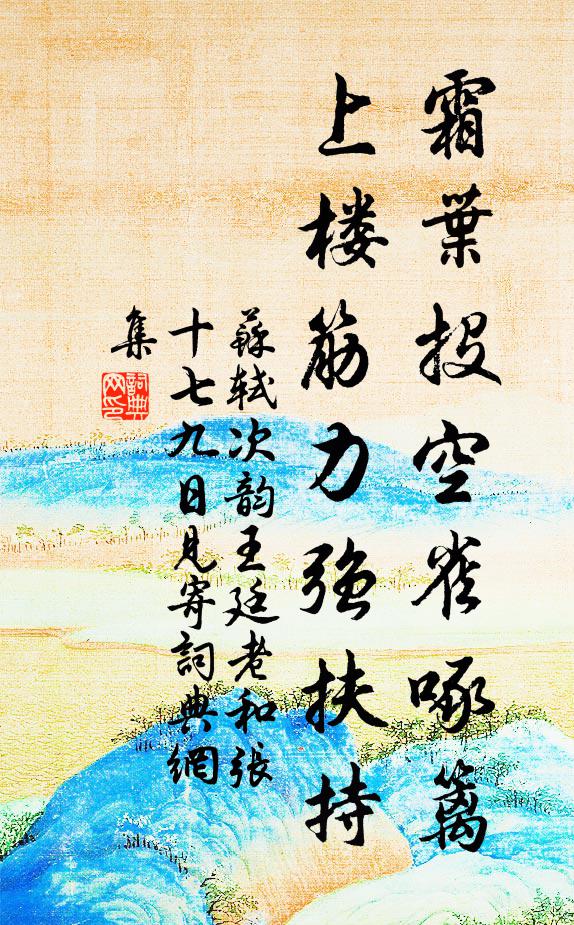 霜葉投空雀啄篱
上楼筋力强扶持
蘇軾次韵王廷老和張
十七九日見寄詞典網
集
詞典網印